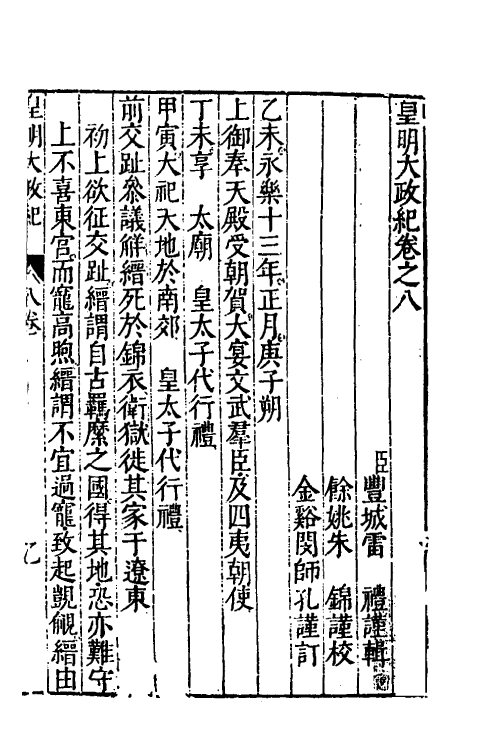 皇明大政紀卷之八
臣豐城雷　禮謹輯
餘姚朱　錦謹校
金谿閔師孔謹訂
乙未永樂十三年正月庚子朔
上御奉天殿受朝賀大宴文武羣臣及四夷朝使
丁未享　太廟　皇太子代行禮
甲寅大祀天地於南郊　皇太子代行禮
前交趾參議觧縉死於錦衣衛獄徙其家于遼東
初上欲征交趾縉謂自古羈縻之國得其地恐亦難守
上不喜東宮而寵高煦縉謂不宜過寵致起覬覦縉由
皇明大政紀　八卷